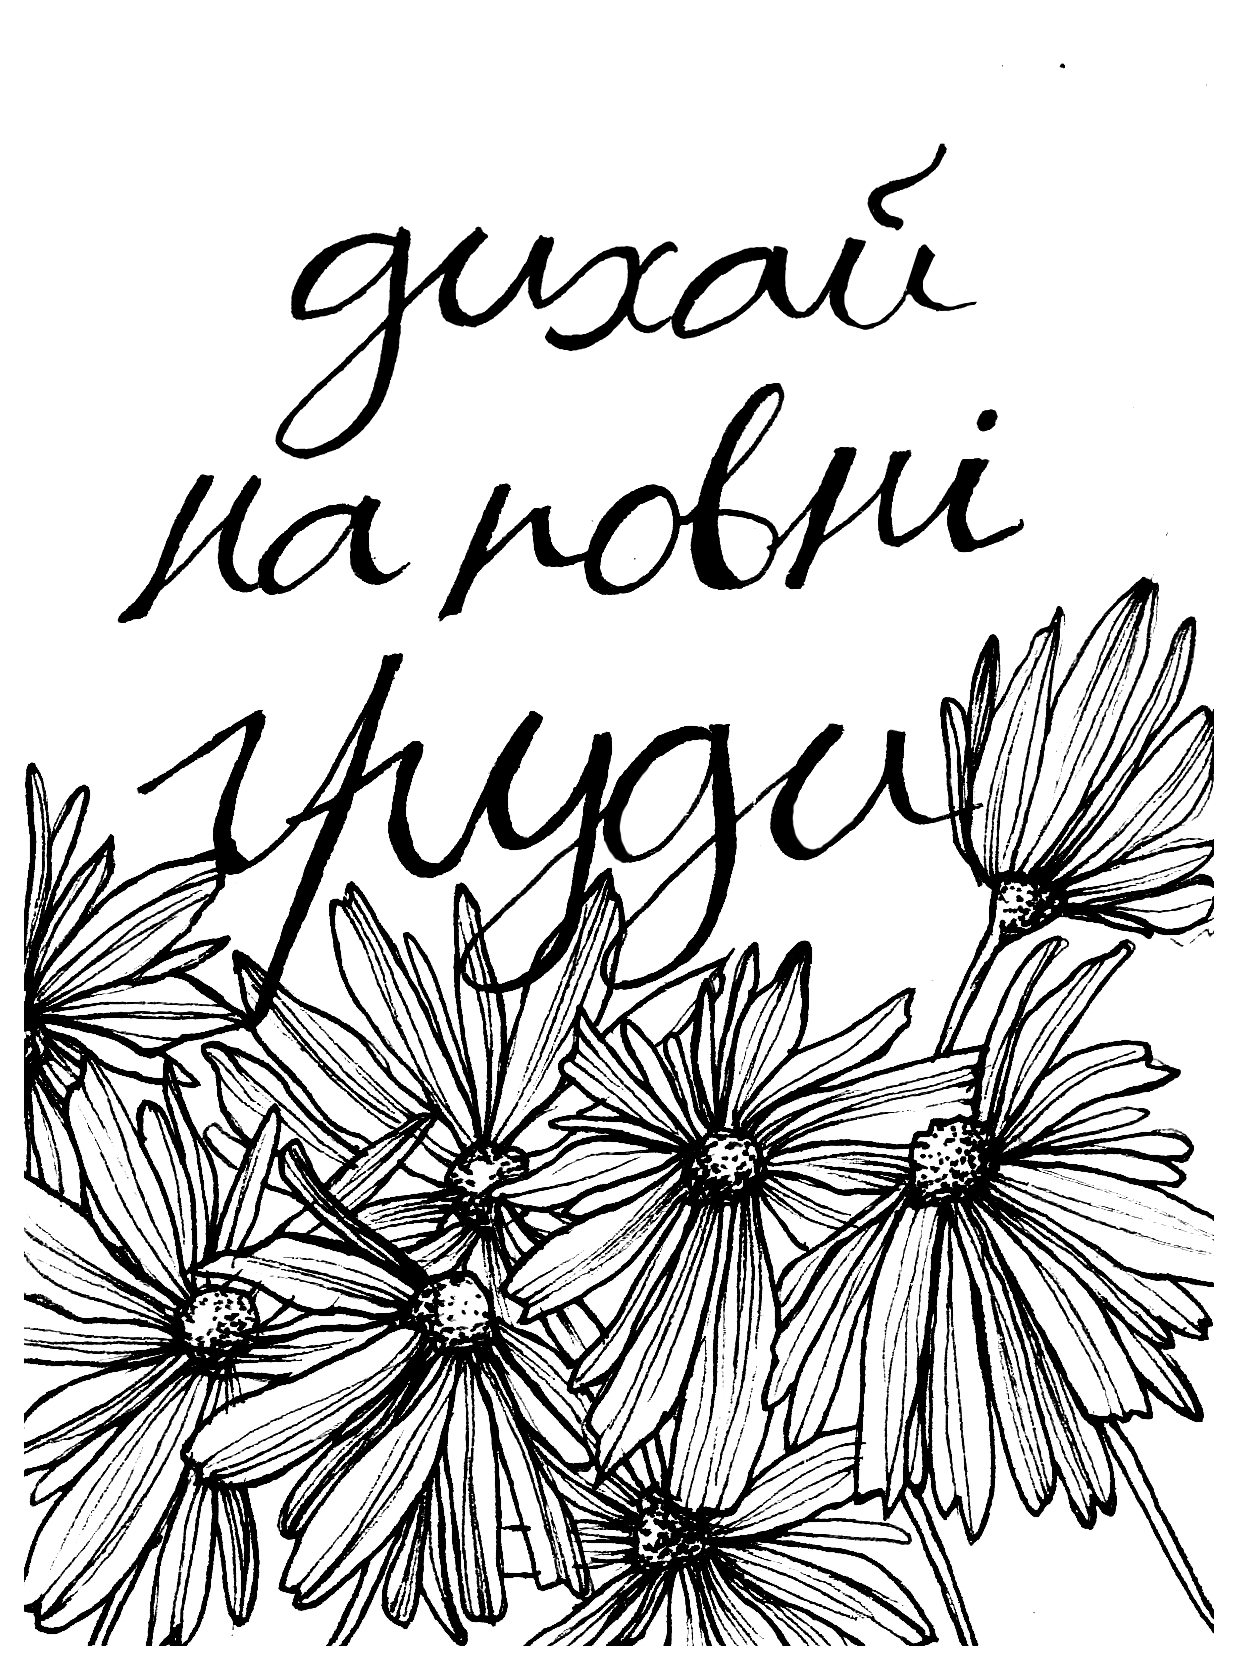 дихай
на ровні
груди